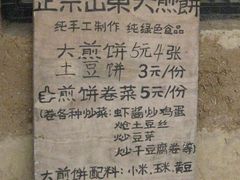 正宗山東大煎餅
纯手工制作 纯绿色食品
大煎饼5元4张
土豆饼 3元/份
煎饼卷菜 5元/份
(卷各种炒菜: 虾酱炒鸡蛋
炝土豆丝
炒豆芽
炒干豆腐卷等)
大煎饼配料: 小米. 玉米. 黄豆